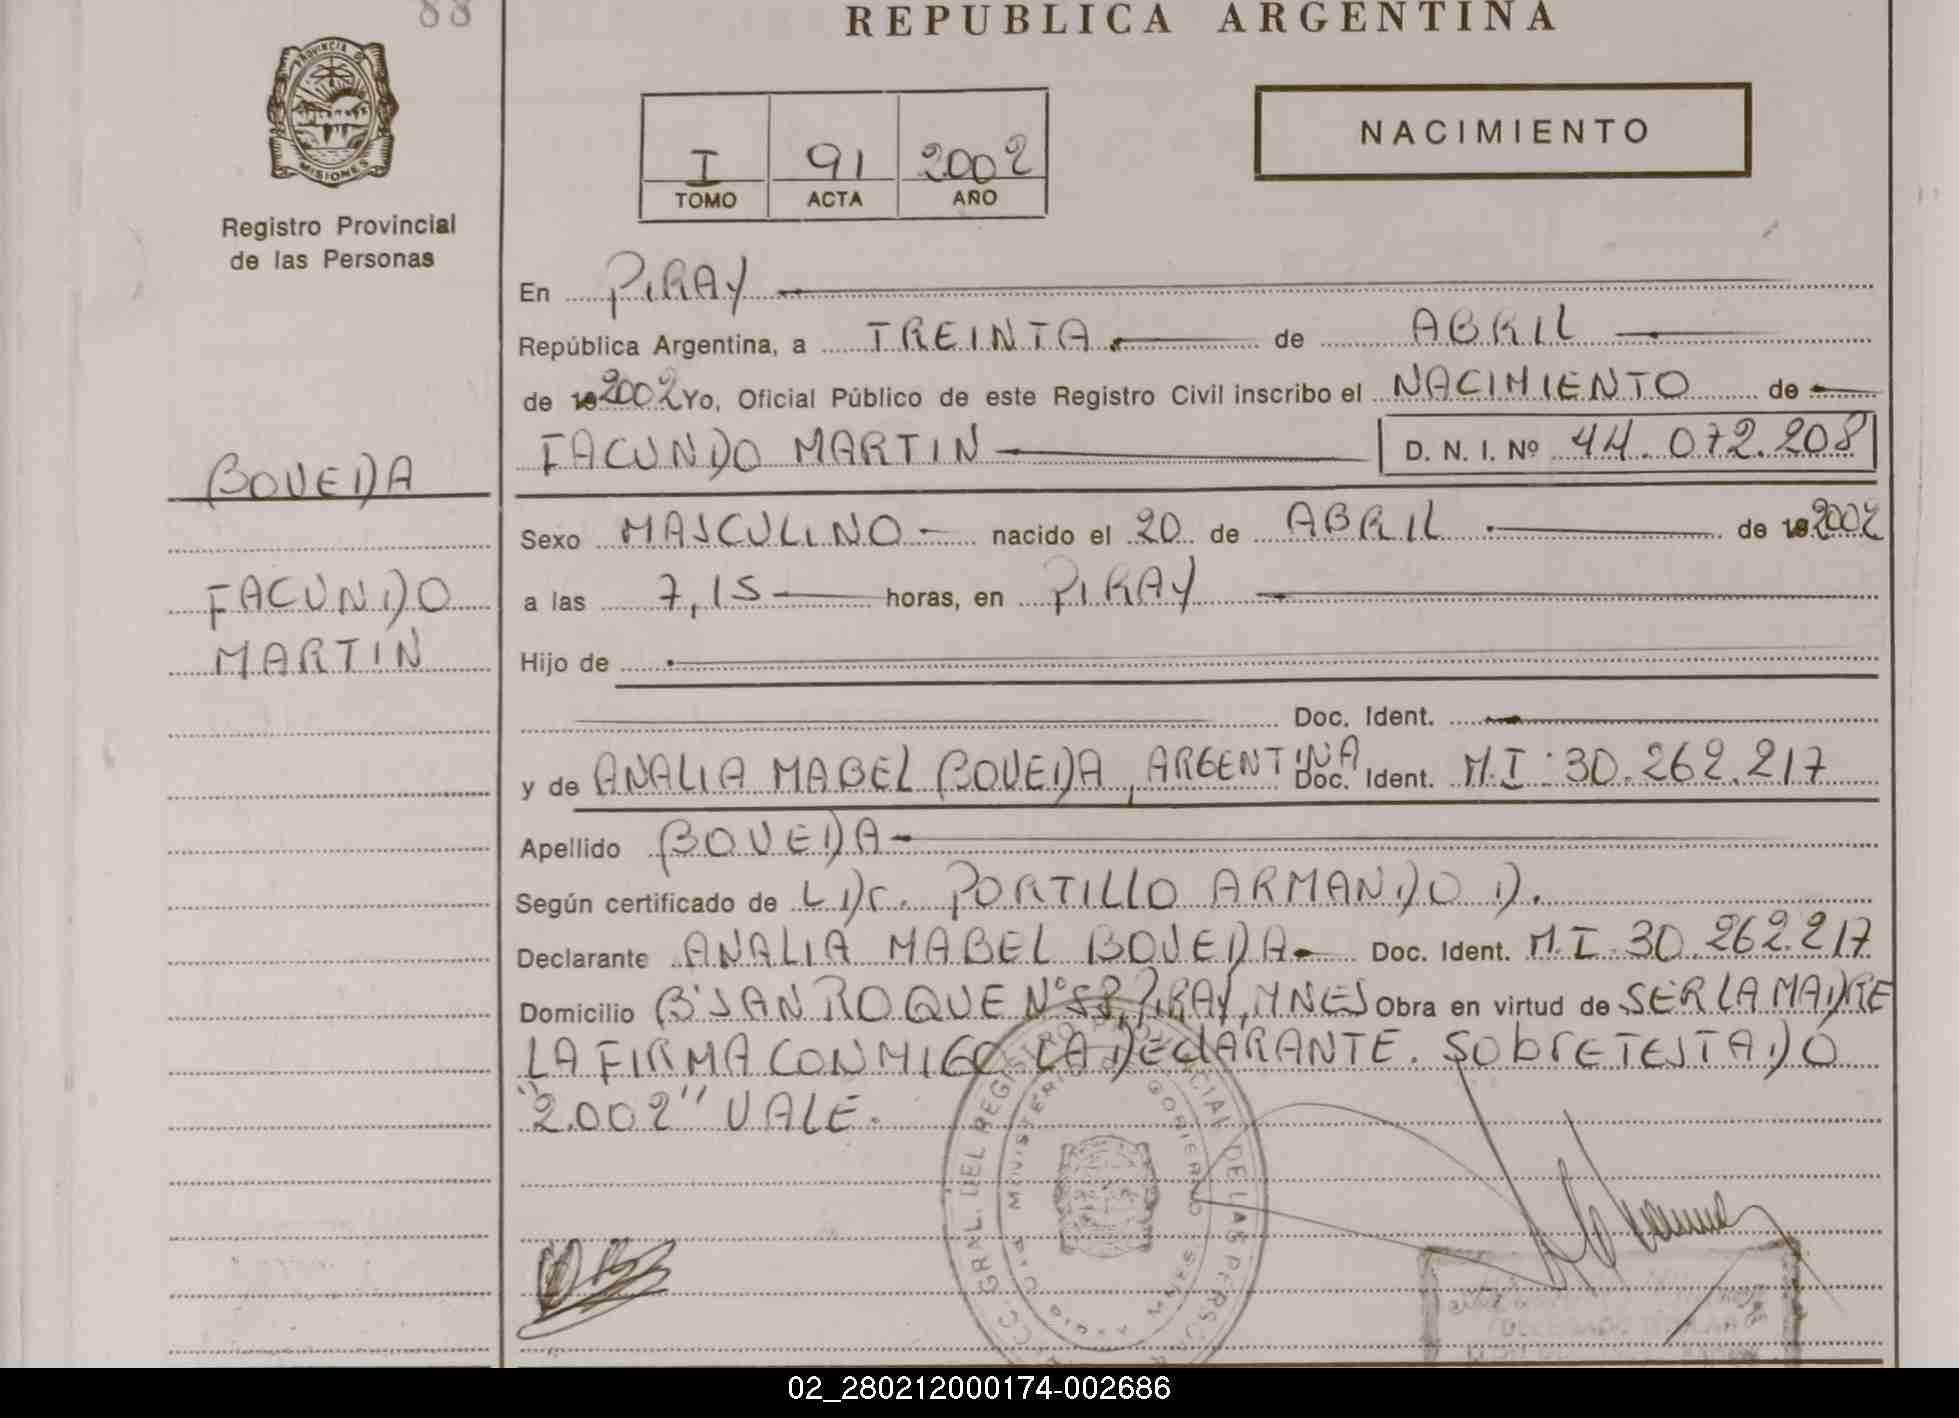 88
REPUBLICA ARGENTINA
PROVINCIA DE MISIONES
Registro Provincial
de las Personas
I 91 2002
TOMO ACTA AÑO
NACIMIENTO
En PIRAY
República Argentina, a TREINTA de ABRIL
de 192002 Yo, Oficial Público de este Registro Civil inscribo el NACIMIENTO de
FACUNDO MARTIN D. N. I. Nº 44.072.208
BOVEDA
FACUNDO
MARTIN
Sexo MASCULINO nacido el 20 de ABRIL de 192002
a las 7,15 horas, en PIRAY
Hijo de
Doc. Ident.
y de ANALIA MABEL BOVEDA, ARGENTINA Doc. Ident. M.I: 30.262.217
Apellido BOVEDA
Según certificado de L Dr. PORTILLO ARMANDO D.
Declarante ANALIA MABEL BOVEDA Doc. Ident. M.I. 30.262.217
Domicilio Bº SAN ROQUE Nº 58, PIRAY, MNES Obra en virtud de SER LA MADRE
LA FIRMA CONMIGO LA DECLARANTE. SObrETESTADO
"2.002" VALE.
GRAL. DEL REGISTRO PROVINCIAL DE LAS PERSONAS
MINISTERIO DE GOBIERNO
MNES
02_280212000174-002686